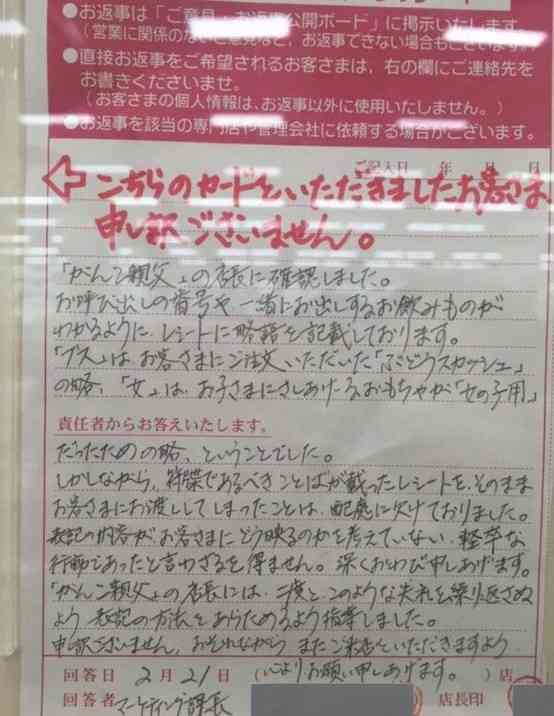 ●お返事は「ご意見・お返事公開ボード」に掲示いたします。
(営業に関係のないご意見など、お返事できない場合もございます。)
●直接お返事をご希望されるお客さまは、右の欄にご連絡先を
お書きくださいませ。
(お客さまの個人情報は、お返事以外に使用いたしません。)
●お返事を該当の専門店や管理会社に依頼する場合がございます。
ご記入日 年 月 日
⇦こちらのカードをいただきましたお客さま
申し訳ございません。
「がんこ親父」の店長に確認しました。
お呼び出しの番号や一緒にお出しするお飲みものが
わかるように、レシートに略語を記載しております。
「ブス」は、お客さまにご注文いただいた「ぶどうスカッシュ」
の略、「女」は、お子さまにさしあげるおもちゃが「女の子用」
責任者からお答えいたします。
だったための略、ということでした。
しかしながら、符牒であるべきことばが載ったレシートを、そのまま
お客さまにお渡ししてしまったことは、配慮に欠けておりました。
表記の内容がお客さまにどう映るのかを考えていない、軽率な
行動であったと言わざるを得ません。深くおわび申しあげます。
「がんこ親父」の店長には、二度とこのような失礼を繰り返さぬ
よう、表記の方法をあらためるよう指導しました。
申し訳ございません。おそれながら、またご来店をいただきますよう
回答日 2月21日 (心よりお願い申しあげます。)店
回答者 マーケティング課長 店長印